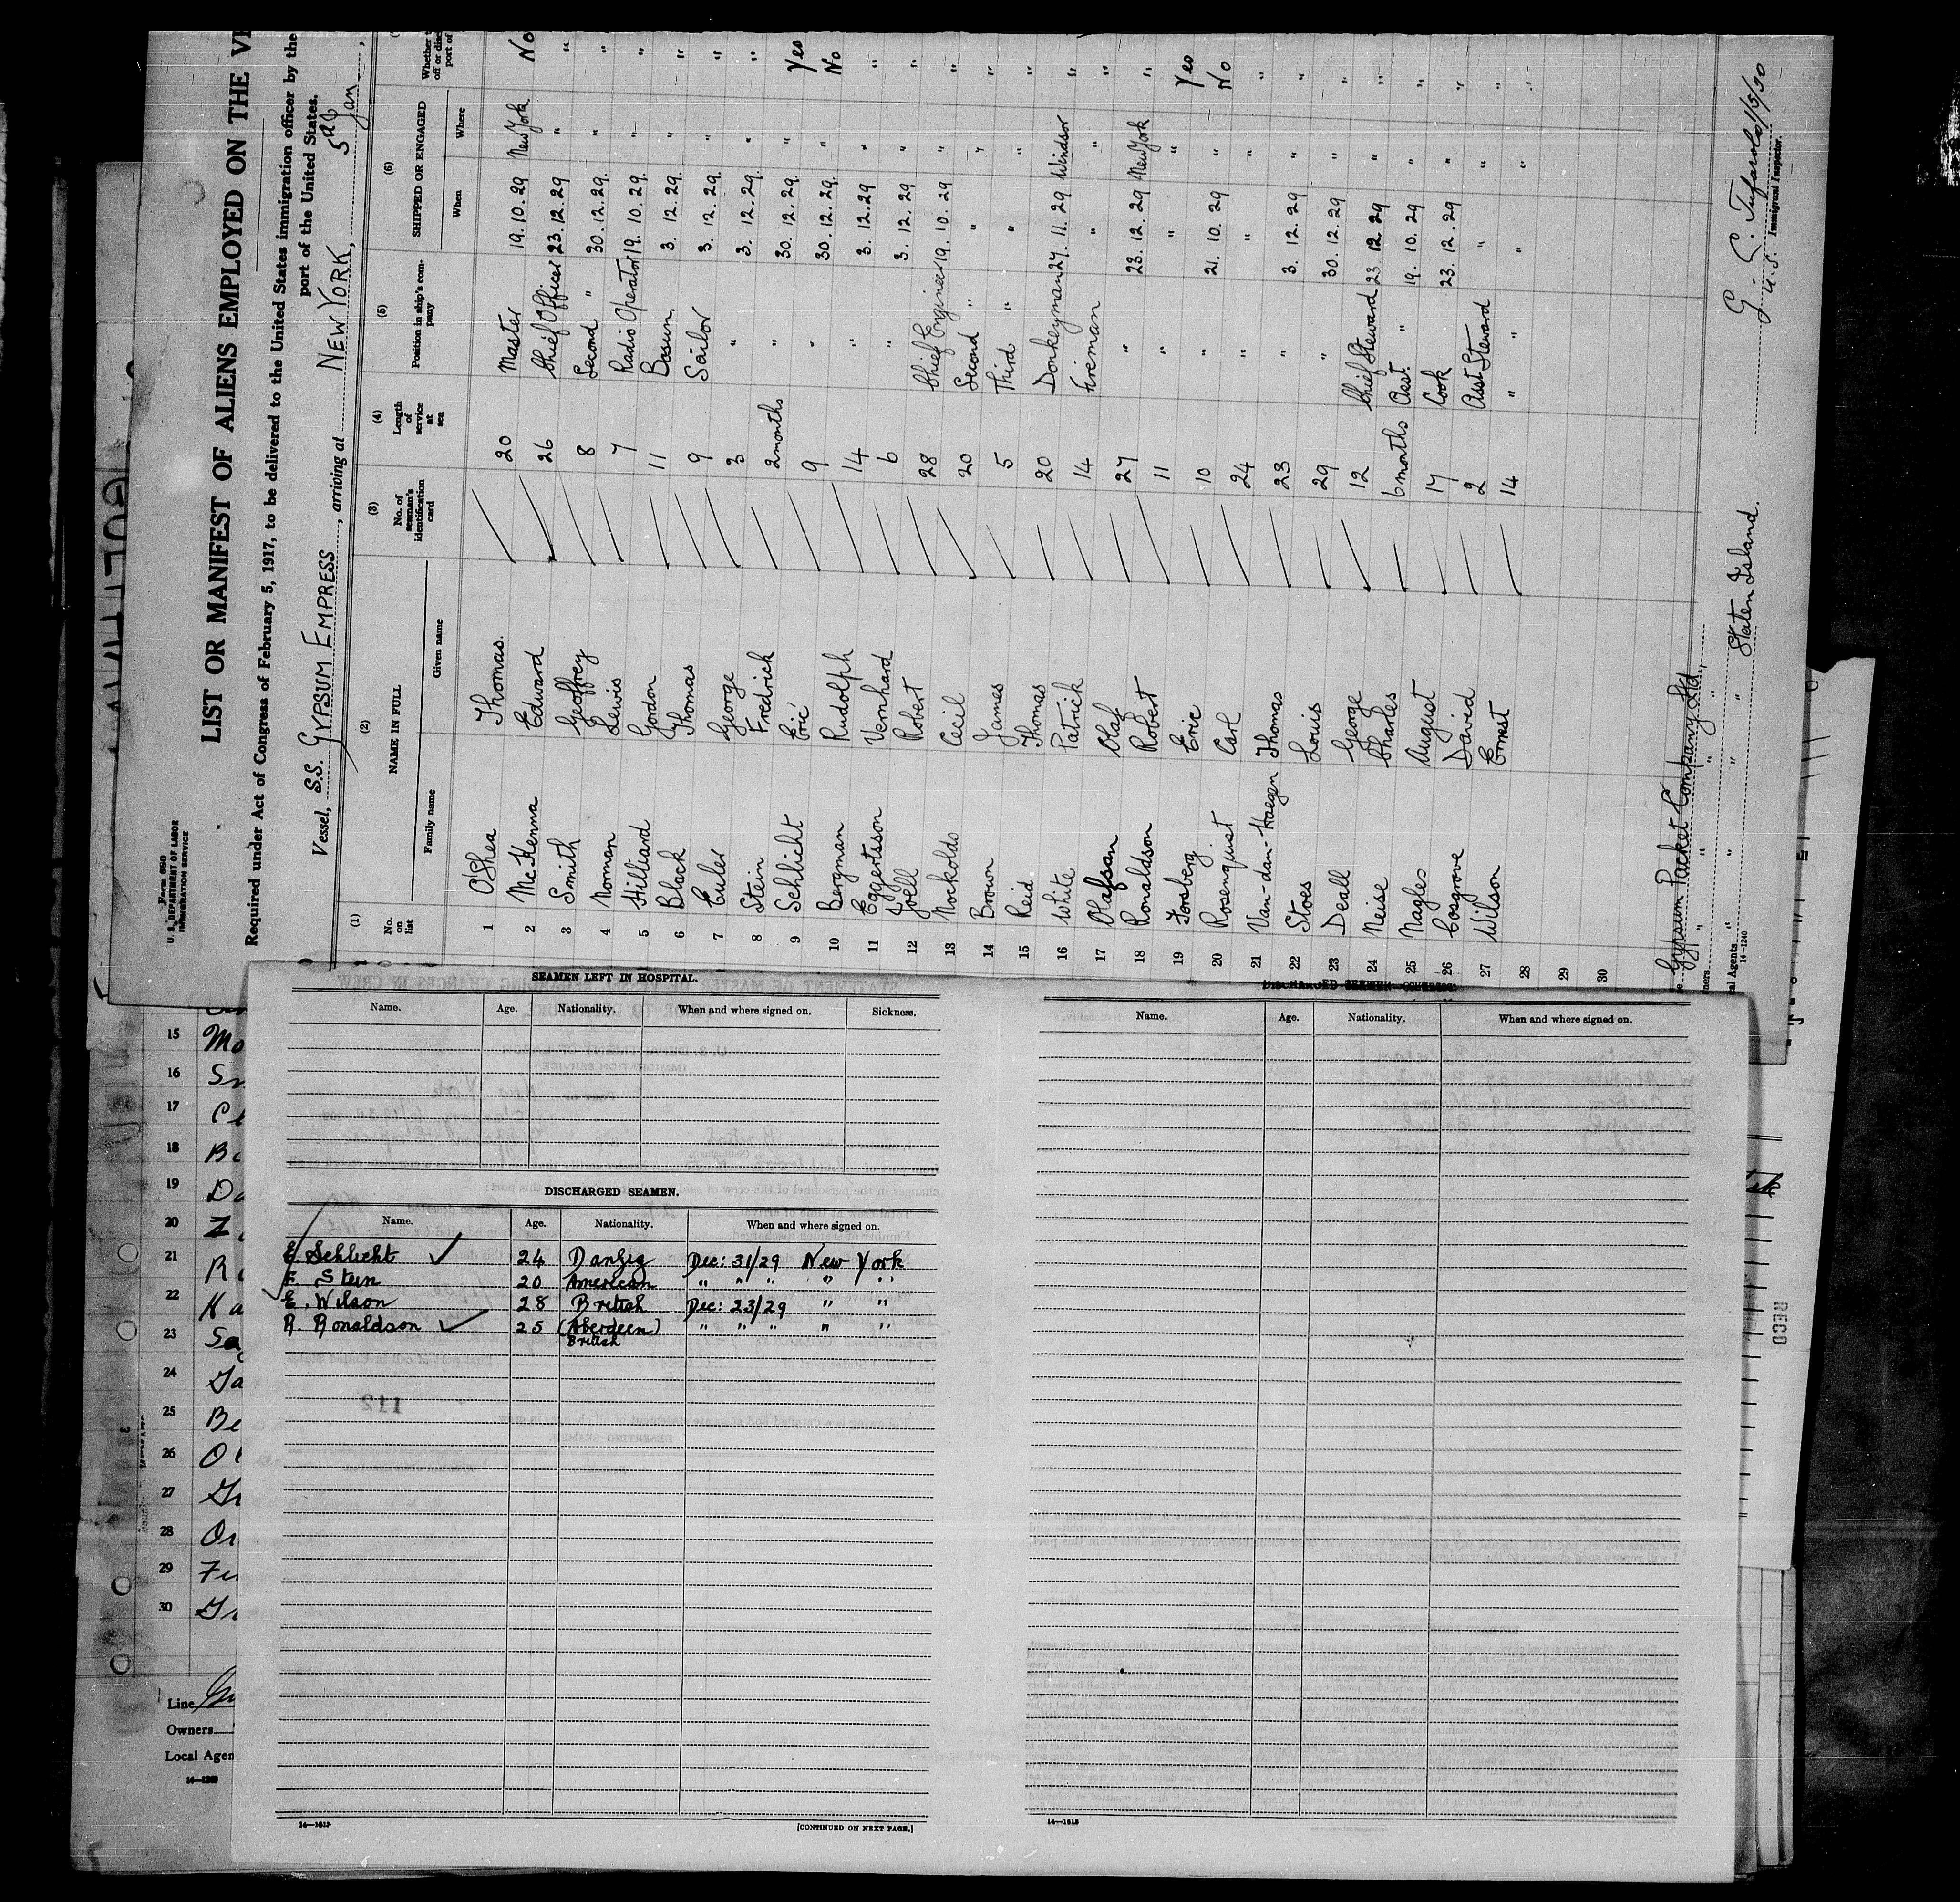 Form 680
U. S. DEPARTMENT OF LABOR
IMMIGRATION SERVICE
LIST OR MANIFEST OF ALIENS EMPLOYED ON THE
Required under Act of Congress of February 5, 1917, to be delivered to the United States immigration officer by the
port of the United States.
Vessel, S.S. GYPSUM EMPRESS, arriving at NEW YORK, 5th Jan
(1) (2) (3) (4) (5) (6)
No. on list NAME IN FULL No. of seaman's identification card Length of service at sea Position in ship's company SHIPPED OR ENGAGED
Family name Given name When Where
1 O'Shea Thomas. 20 Master 19. 10. 29 New York No
2 McKenna Edward 26 Chief Officer 23. 12. 29 " "
3 Smith Geoffrey 8 Second " 30. 12. 29. " "
4 Norman Lewis 7 Radio Operator 19. 10. 29. " "
5 Hilliard Gordon 11 Bosun 3. 12. 29. " "
6 Black Thomas 9 Sailor 3. 12. 29. " "
7 Euler George 3 " 3. 12. 29. " "
8 Stein Fredrick 2 months " 30. 12. 29. " Yes
9 Schlicht Eric 9 " 30. 12. 29. " No
10 Bergman Rudolph 14 " 3. 12. 29 " "
11 Eggertsson Vernhard 6 " 3. 12. 29 " "
12 Joell Robert 28 Chief Engineer 19. 10. 29 " "
13 Nockolds Cecil 20 Second " " " "
14 Brown James 5 Third " " " "
15 Reid Thomas 20 Donkeyman 27. 11. 29 Windsor "
16 White Patrick 14 Fireman " " "
17 Olafsan Olaf 27 " 23. 12. 29 New York "
18 Ronaldson Robert 11 " " " Yes
19 Forsberg Eric 10 " 21. 10. 29 " No
20 Rosenquist Carl 24 " " " "
21 Van-dan-Haegen Thomas 23 " 3. 12. 29 " "
22 Stoes Louis 29 " 30. 12. 29 " "
23 Deall George 12 Chief Steward 23 12 29 " "
24 Neise Charles 6 months Asst. " 19. 10. 29 " "
25 Nagles August 17 Cook 23. 12. 29 " "
26 Cosgrove David 2 Asst Steward " " "
27 Wilson Ernest 14 " " " "
28
29
30
Gypsum Packet Company Ltd.,
" " " "
Local Agents " " " Staten Island.
14-1240
U.S. Immigrant Inspector.
SEAMEN LEFT IN HOSPITAL.
Name. Age. Nationality. When and where signed on. Sickness.
DISCHARGED SEAMEN.
Name. Age. Nationality. When and where signed on.
E. Schlicht 24 Danzig Dec: 31/29 New York
F. Stein 20 American " " " " "
E. Wilson 28 British Dec: 23/29 " "
R. Ronaldson 25 (Aberdeen) " " " " "
British
14-1613
[CONTINUED ON NEXT PAGE.]
Name. Age. Nationality. When and where signed on.
14-1613
15 Mo
16
17
18
19 Da
20
21
22 Ka
23 Sa
24
25 Be
26
27
28
29
30
Line
Owners
Local Agen
RECD